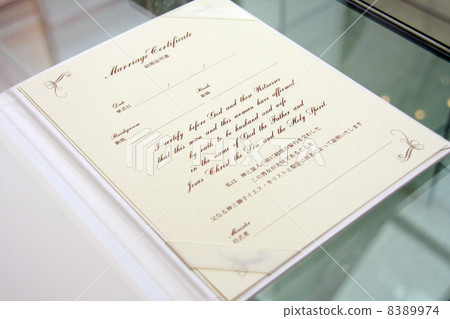 Marriage Certificate
結婚証明書
/ /
Date
挙式日
Bride
新婦
Bridegroom
新郎
I certify before God and these Witnesses
that this man and this woman have affirmed
by oath to be husband and wife
in the name of God the Father and
Jesus Christ the Son and the Holy Spirit.
私は 神と証人の前に結婚の誓約を交わした
この男女が夫婦であることを
父なる神と御子イエス・キリストと聖霊の御名によって証明いたします
Minister
司式者
PIXTA
8389974